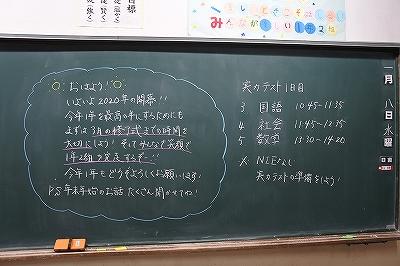 おはよう!
いよいよ2020年の開幕!!
今年1年を最高の年にするためにも
まずは3月の修了式までの時間を
大切にしよう! そしてみんなで笑顔で
1年2組を完走するぞー!!
今年1年もどうぞよろしくお願いします!
P.S 年末年始のお話たくさん聞かせてね!
実力テスト1日目
3 国語 10:45-11:35
4 社会 11:45-12:35
5 数学 13:30-14:20
※ NIEなし
実力テストの準備をしよう!
一月八日水曜
目標
みんなが